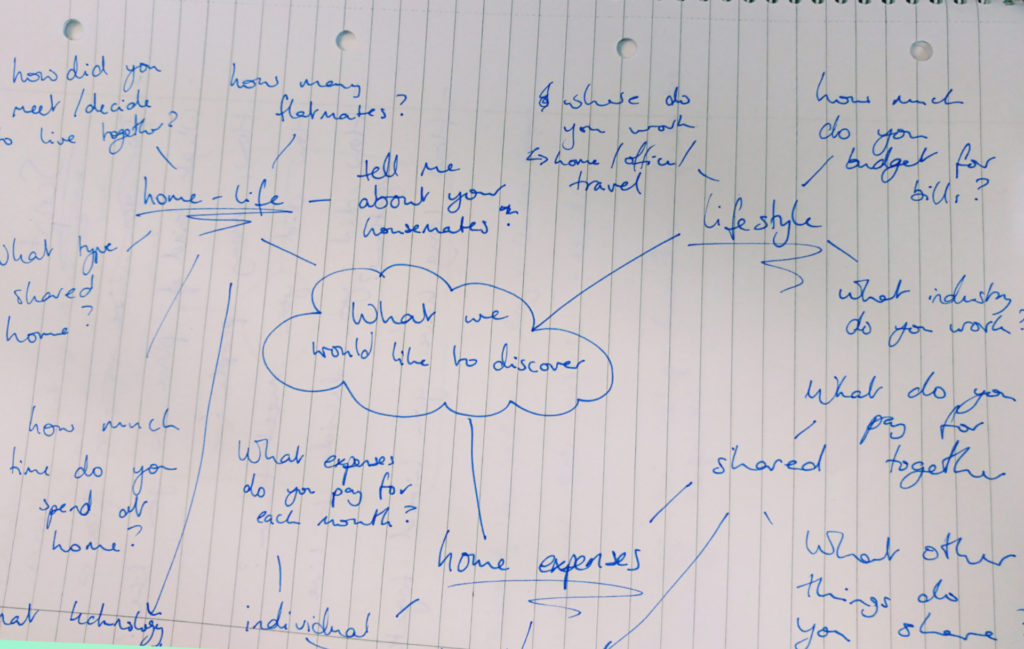 how did you
meet / decide
to live together?
how many
flatmates?
where do
you work
↳ home / office /
travel
how much
do you
budget for
bills?
home - life
tell me
about your
housemates?
lifestyle
What type
shared
home?
What we
would like to discover
what industry
do you work?
how much
time do you
spend at
home?
What expenses
do you pay for
each month?
What do you
pay for
together
shared
home expenses
What other
things do
you share?
individual
technology